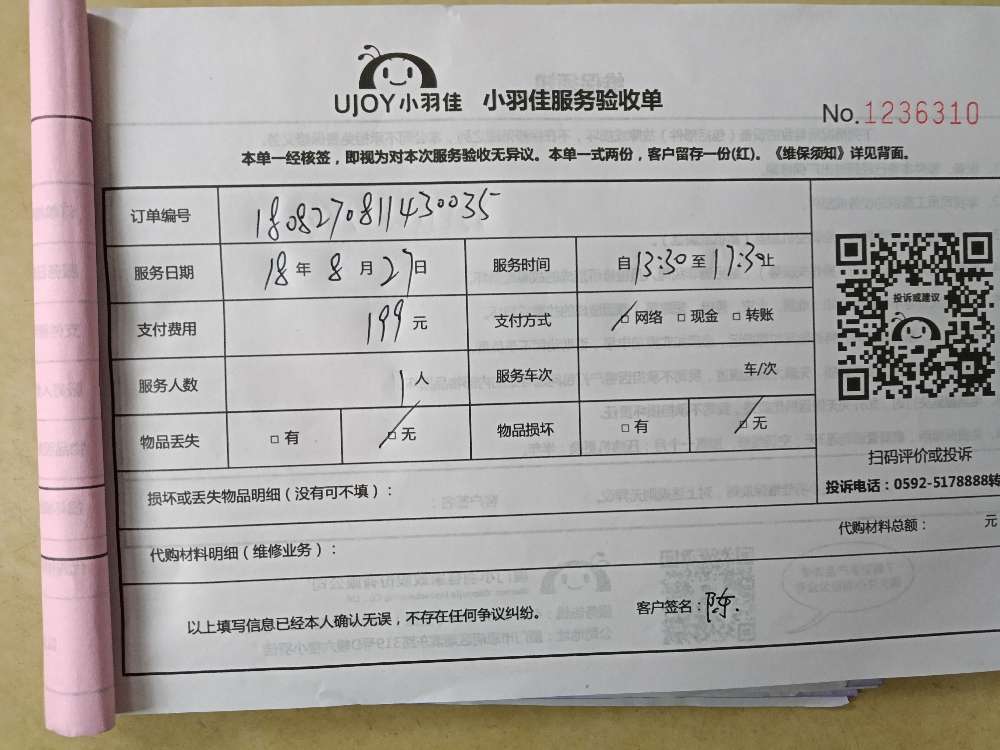 UJOY小羽佳 小羽佳服务验收单
No.1236310
本单一经核签，即视为对本次服务验收无异议。本单一式两份，客户留存一份(红)。《维保须知》详见背面。
订单编号 180827081143003​5
服务日期 18年8月27日 服务时间 自13:30至17:30止
支付费用 199元 支付方式 □网络 □现金 □转账
服务人数 1人 服务车次 车/次
物品丢失 □有 □无 物品损坏 □有 □无
投诉或建议
扫码评价或投诉
投诉电话：0592-5178888转
损坏或丢失物品明细（没有可不填）：
代购材料明细（维修业务）： 代购材料总额： 元
以上填写信息已经本人确认无误，不存在任何争议纠纷。 客户签名：陈.